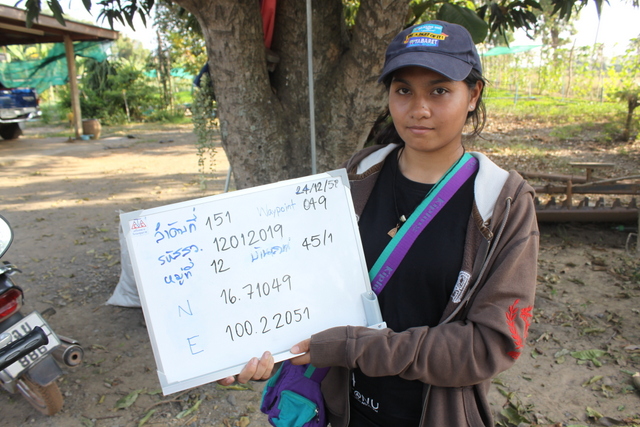 24/12/58
ลำดับที่ 151 Waypoint 049
รหัสรว. 12012019
หมู่ที่ 12 บ้านเลขที่ 45/1
N 16.71049
E 100.22051
Kipling